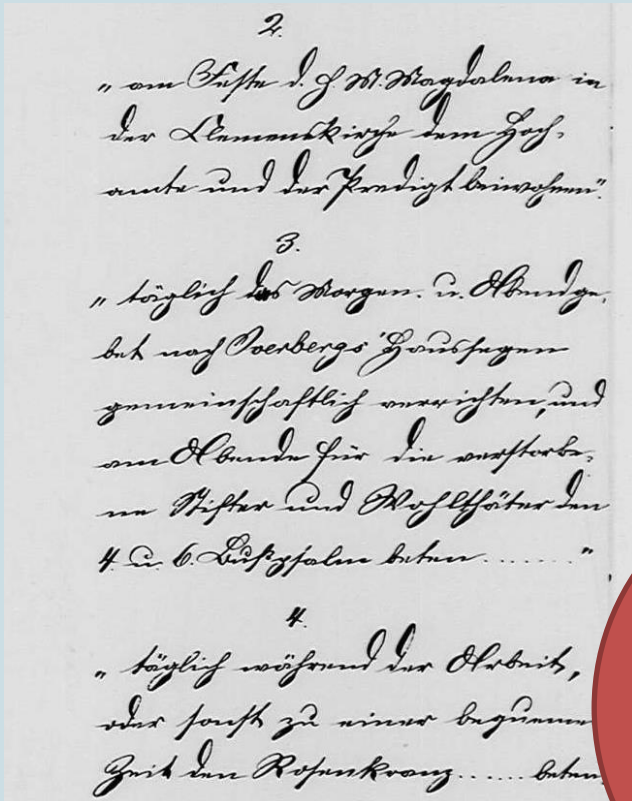 2.
„ am Feste d. h M. Magdalena in
der Clemenskirche dem Hoch-
amte und der Predigt beiwohnen".
3.
„ täglich das Morgen- u. Abendge-
bet nach Overbergs Haussegen
gemeinschaftlich verrichten, und
am Abende für die verstorbe-
ne Stifter und Wohlthäter den
4. u. 6. Bußpsalm beten ....... "
4.
„ täglich während der Arbeit,
oder sonst zu einer bequeme
Zeit den Rosenkranz ...... beten